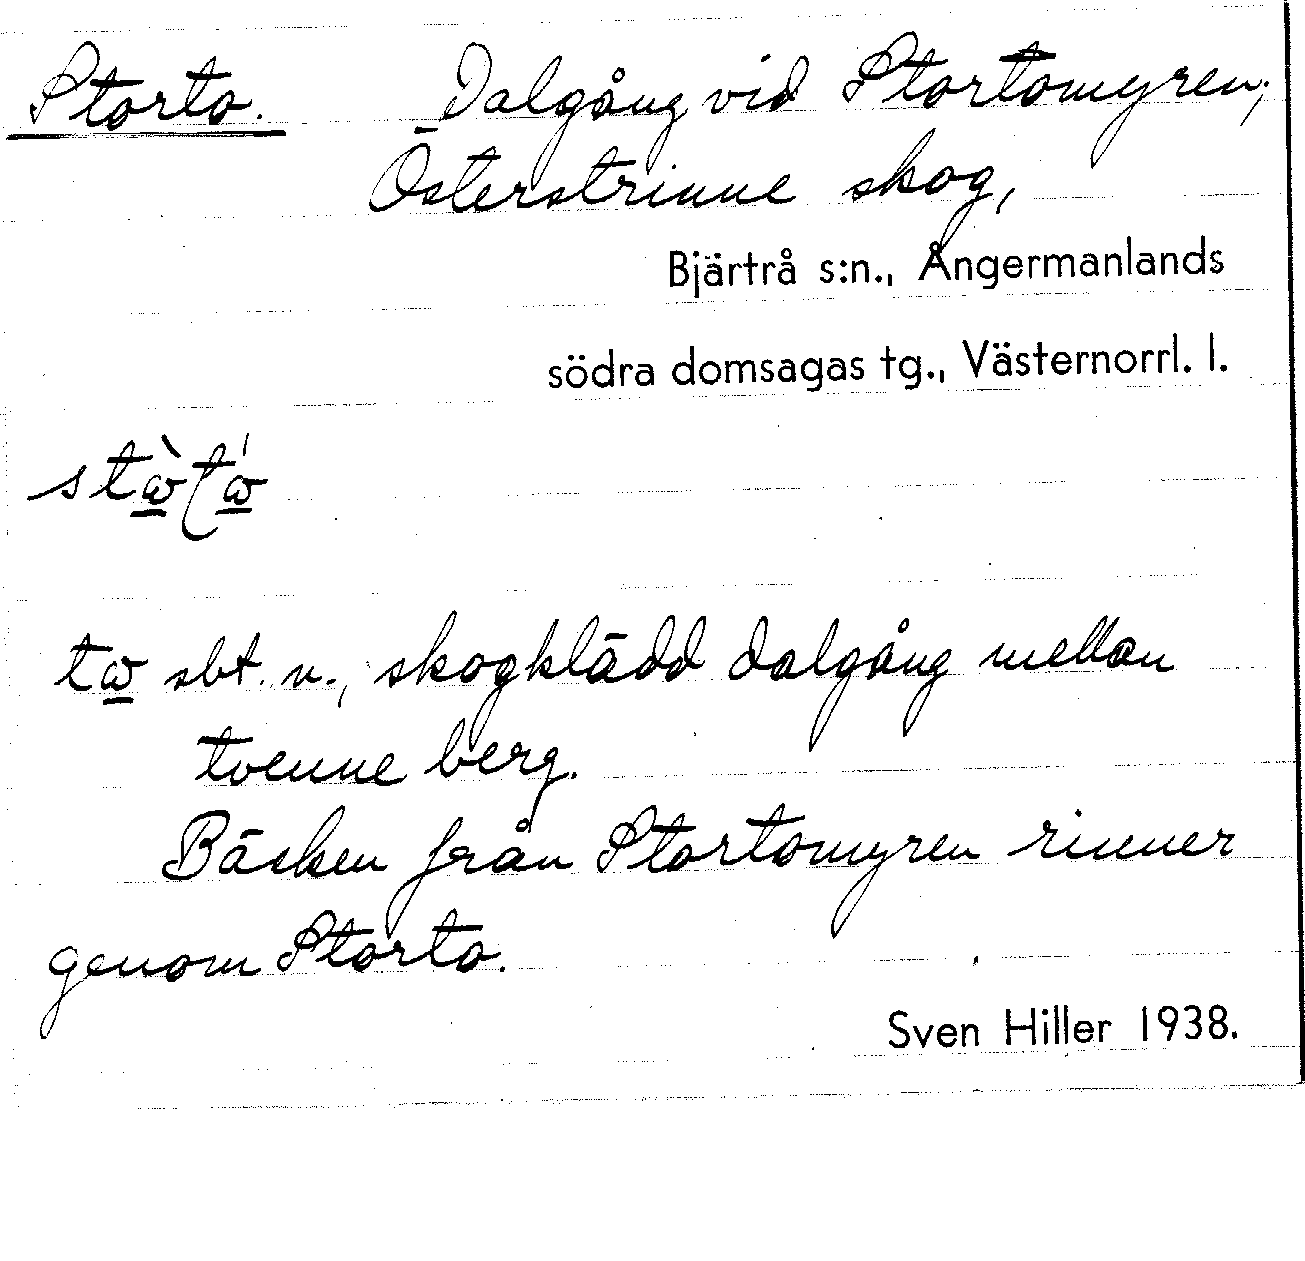 Storto. Dalgång vid Stortomyren;
Österstrinne skog,
Bjärtrå s:n., Ångermanlands
södra domsagas tg., Västernorrl. l.
tω sbt. n., skogklädd dalgång mellan
tvenne berg.
Bäcken från Stortomyren rinner
genom Storto.
Sven Hiller 1938.